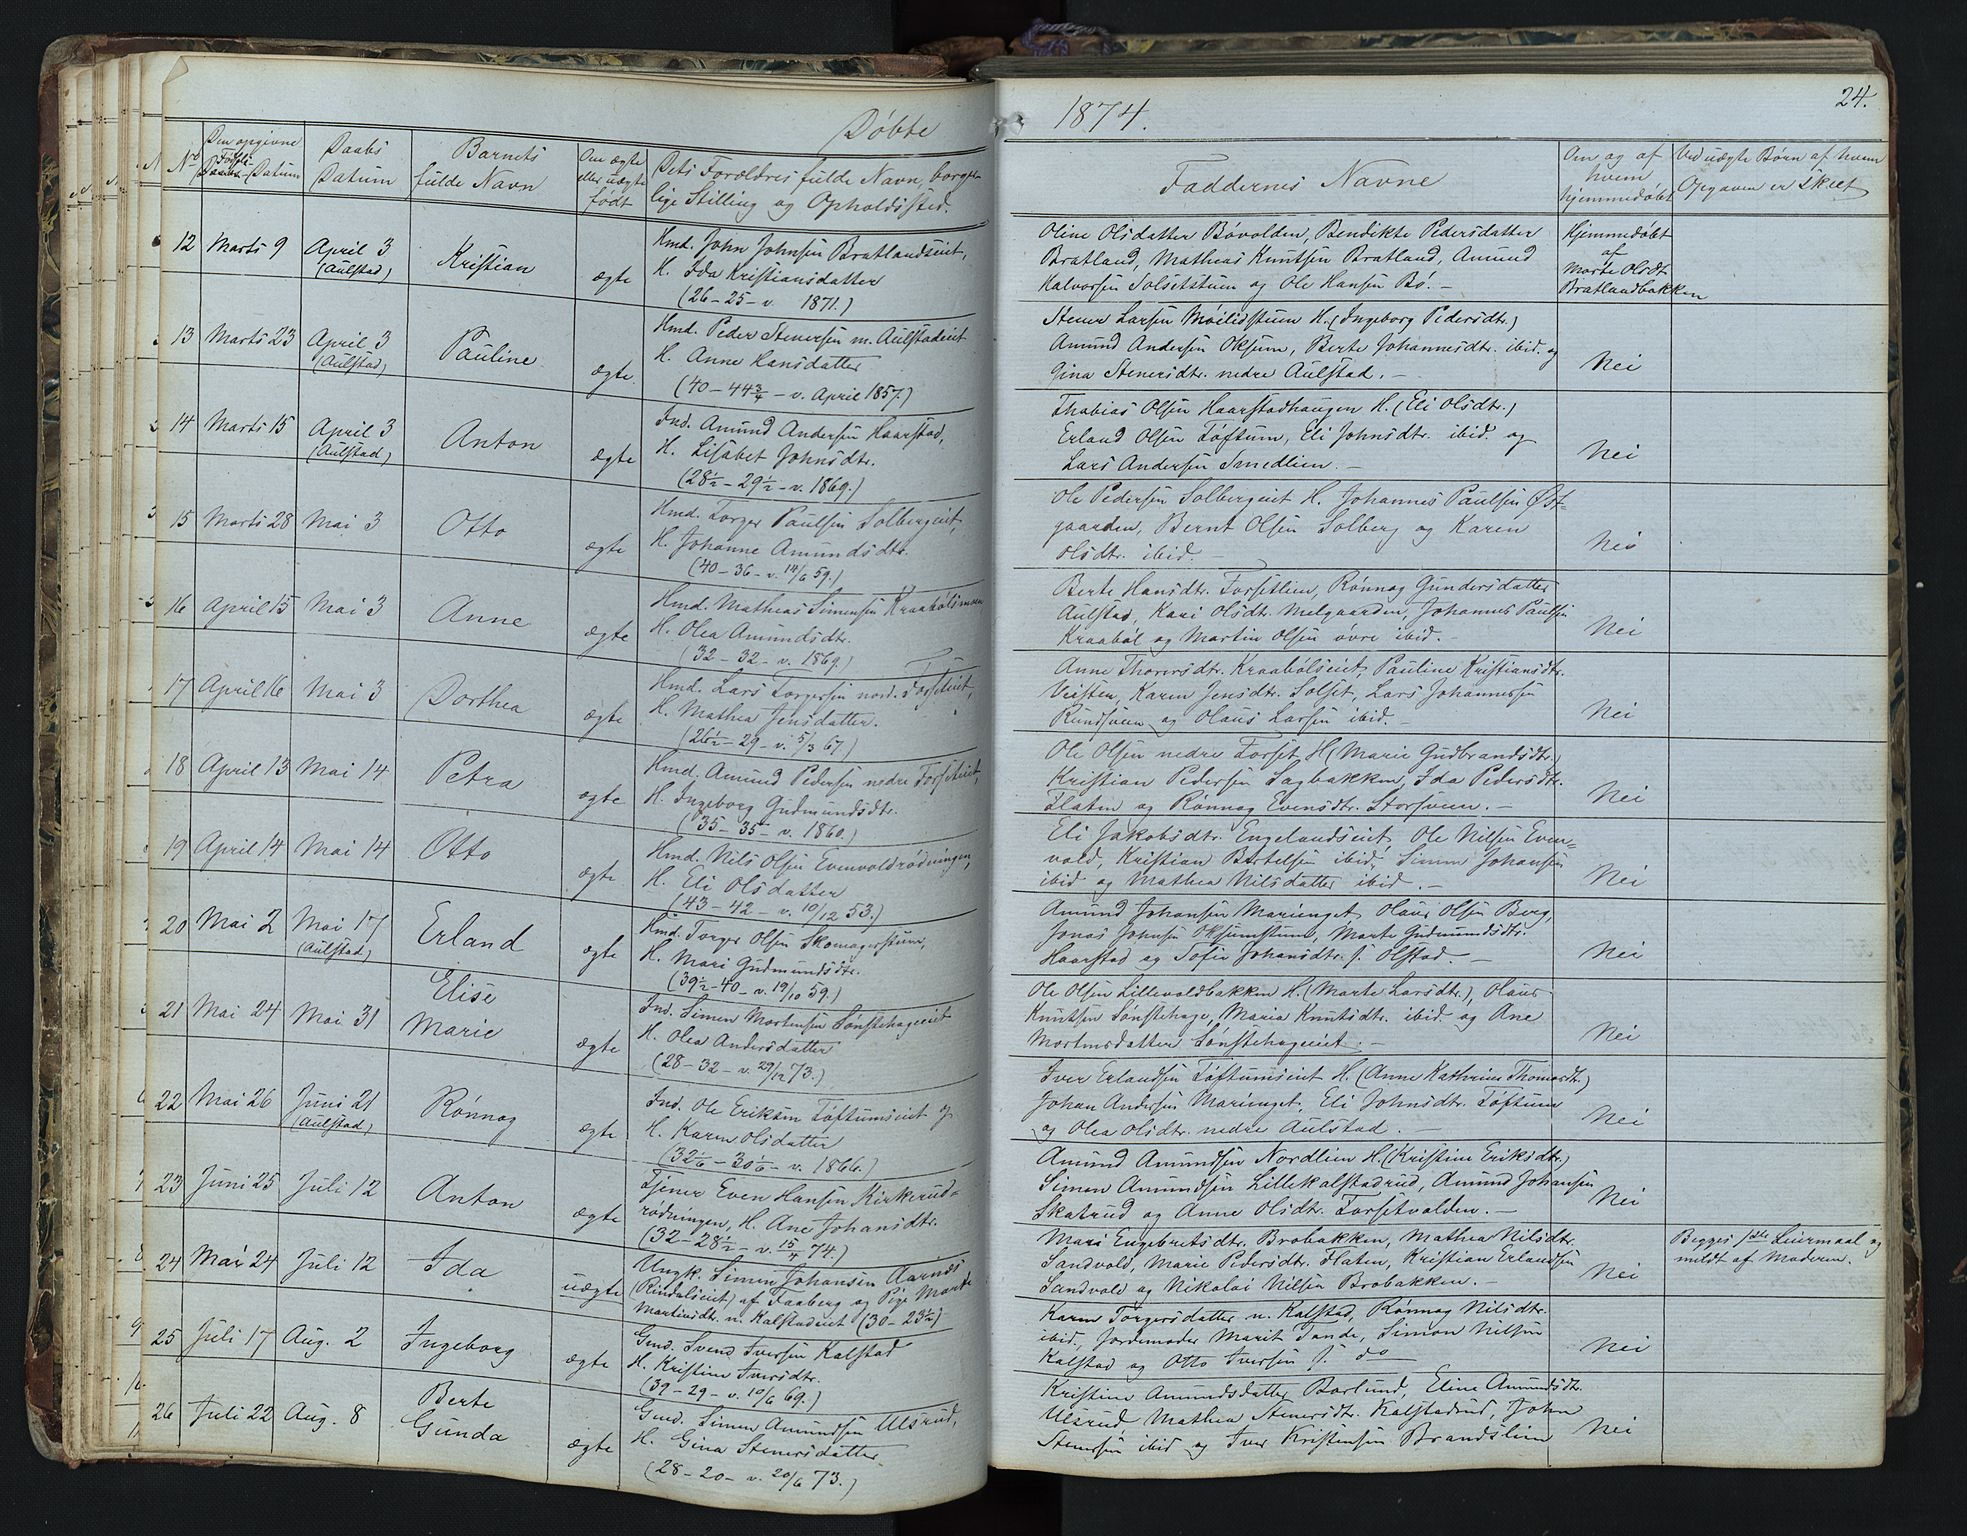 Døbte
1874.
24.
No
Den opgivne
Føds.
Daabs-Datum
Daabs
Datum
Barnets
fulde Navn
Om ægte
eller uægte
født
Dets Forældres fulde Navn, borger-
lige Stilling og Opholdssted.
Faddernes Navne
Om og af
hvem
hjemmedøbt
Ved uægte Børn af hvem
Opgaven er skeet
12 Marts 9 April 3
(Aulstad)
Kristian
ægte
Hmd. John Johnsen Bratlandseiet,
H. Ida Kristiansdatter
(26-25-v. 1871.)
Oline Olsdatter Bøvolden, Bendikte Pedersdatter
Bratland, Mathias Knutsen Bratland, Amund
Halvorsen Solsetstuen og Ole Hansen Bø. -
Hjemmedøbt
af
Marte Olsdt.
Bratlandbakken
13 Marts 23 April 3
(Aulstad)
Pauline
ægte
Hmd. Peder Stenersen m. Aulstadeiet
H. Anne Hansdatter
(40-44 3/4-v. April 1857.)
Stener Larsen Moilidstuen H. (Ingeborg Pedersdtr.)
Amund Andersen Oksum, Berte Johannesdtr. ibid. og
Gina Stenersdtr. nedre Aulstad. -
Nei
14 Marts 15 April 3
(Aulstad)
Anton
ægte
Ind. Amund Andersen Haarstad,
H. Lisabet Johnsdtr.
(28 1/2-29 1/2-v. 1869.)
Thobias Olsen Haarstadhaugen H. (Eli Olsdtr.)
Erland Olsen Tøftum, Eli Johnsdtr. ibid. og
Lars Andersen Smedlien. -
Nei
15 Marts 28 Mai 3
Otto
ægte
Hmd. Torger Paulsen Solbergeiet,
H. Johanne Amundsdtr.
(40-36-v. 14/6 59.)
Ole Pedersen Solbergeiet H. Johannes Paulsen Øst-
gaarden, Bernt Olsen Solberg og Karen
Olsdtr. ibid. -
Nei
16 April 15 Mai 3
Anne
ægte
Hmd. Mathias Simensen Kraabølsmoen
H. Olea Amundsdtr.
(32-32-v. 1869.)
Berte Hansdtr. Forsetlien, Rønnog Gundersdatter
Aulstad, Kari Olsdtr. Melgaarden, Johannes Paulsen
Kraabøl og Martin Olsen øvre ibid. -
Nei
17 April 16 Mai 3
Dorthea
ægte
Hmd. Lars Torgersen nord. Forseteiet,
H. Mathea Jensdatter.
(26 1/2-29-v. 5/3 67.)
Anne Thorersdtr. Kraabølseiet, Pauline Kristiansdtr.
Veisten, Karen Jensdtr. Solset, Lars Johannessen
Rundsveen og Olaus Larsen ibid. -
Nei
18 April 13 Mai 14
Petra
ægte
Hmd. Amund Pedersen nedre Forseteiet,
H. Ingeborg Gudmundsdtr.
(35-35-v. 1860.)
Ole Olsen nedre Forset H (Marie Gudbrandsdtr.
Kristian Pedersen Sagbakken, Ida Pedersdtr.
Flaten og Rønnog Evensdtr. Storsveen. -
Nei
19 April 14 Mai 14
Otto
ægte
Hmd. Nils Olsen Evenvoldrødningen,
H. Eli Olsdatter
(43-42-v. 10/12 53.)
Eli Jakobsdtr. Engelandseiet, Ole Nilsen Even-
vold, Kristian Bertelsen ibid, Simen Johansen
ibid og Mathea Nilsdatter ibid. -
Nei
20 Mai 2 Mai 17
(Aulstad)
Erland
ægte
Hmd. Torger Olsen Skomagerstuen,
H. Mari Gudmundsdtr.
(39 1/2-40-v. 19/10 59.)
Amund Johansen Marienget, Olaus Olsen Berg,
Jonas Johnsen Oksumstuen, Marte Gudmundsdtr.
Haarstad og Sofie Johansdtr. s. Olstad. -
Nei
21 Mai 24 Mai 31
Elise
Marie
ægte
Ind. Simen Mortensen Sønstehageeiet
H. Olea Andersdatter
(28-32-v. 29/12 73.)
Ole Olsen Lillevoldbakken H. (Marte Larsdtr.), Olaus
Knutsen Sønstehage, Maria Knutsdtr. ibid. og Ane
Mortensdatter Sønstehageeiet. -
Nei
22 Mai 26 Juni 21
(Aulstad)
Rønnog
ægte
Ind. Ole Eriksen Tøftumseiet og
H. Karen Olsdatter
(32 1/6-30 1/6-v. 1866.)
Iver Erlandsen Tøftumseiet H. (Anne Kathrine Thomasdtr.)
Johan Andersen Marienget, Eli Johnsdtr. Tøftum
og Olea Olsdtr. nedre Aulstad. -
Nei
23 Juni 25 Juli 12
Anton
ægte
Tjener Even Hansen Kirkerud-
rødningen, H. Ane Johansdtr.
(32-28 1/2-v. 15/4 74.)
Amund Amundsen Nordlien H. (Kristine Eriksdtr.)
Simen Amundsen Lillekalstadrud, Amund Johansen
Skatrud og Anne Olsdtr. Forsetvolden. -
Nei
24 Mai 24 Juli 12
Ida
uægte
Ungk. Simen Johansen Aarnæs
(Rindalseiet) af Faaberg og Pige Marte
Martinsdtr. n. Kalstadeiet (30-23 1/2)
Mari Engebretsdtr. Brobakken, Mathea Nilsdtr.
Sandvold, Marie Pedersdtr. Flaten, Kristian Erlandsen
Sandvold og Nikolai Nilsen Brobakken. -
Nei
Begges 1ste Leiermaal og
meldt af Moderen.
25 Juli 17 Aug. 2
Ingeborg
ægte
Gmd. Svend Iversen Kalstad
H. Kristine Iversdtr.
(39-29-v. 10/6 69.)
Karen Torgersdatter n. Kalstad, Rønnog Nilsdtr.
ibid, Jordemoder Marit Tande, Simon Nilsen
Kalstad og Otto Iversen s. do
Nei
26 Juli 22 Aug. 8
Berte
Gunda
ægte
Gmd. Simen Amundsen Ulsrud,
H. Gina Stenersdatter
(28-20-v. 20/6 73.)
Kristine Amundsdatter Borlund, Eline Amundsdtr.
Ulsrud, Mathea Stenersdtr. Kalstadrud, John
Stenersen ibid og Iver Kristensen Brandslien
Nei